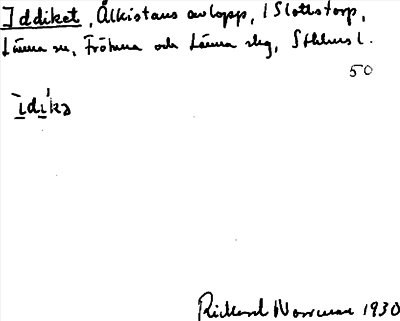 Iddiket, Ålkistans avlopp, i Slottstorp,
Länna sn, Frötuna och Länna skg, Sthlms l.
50
ìdi̍kə
Rickard Norrman 1930